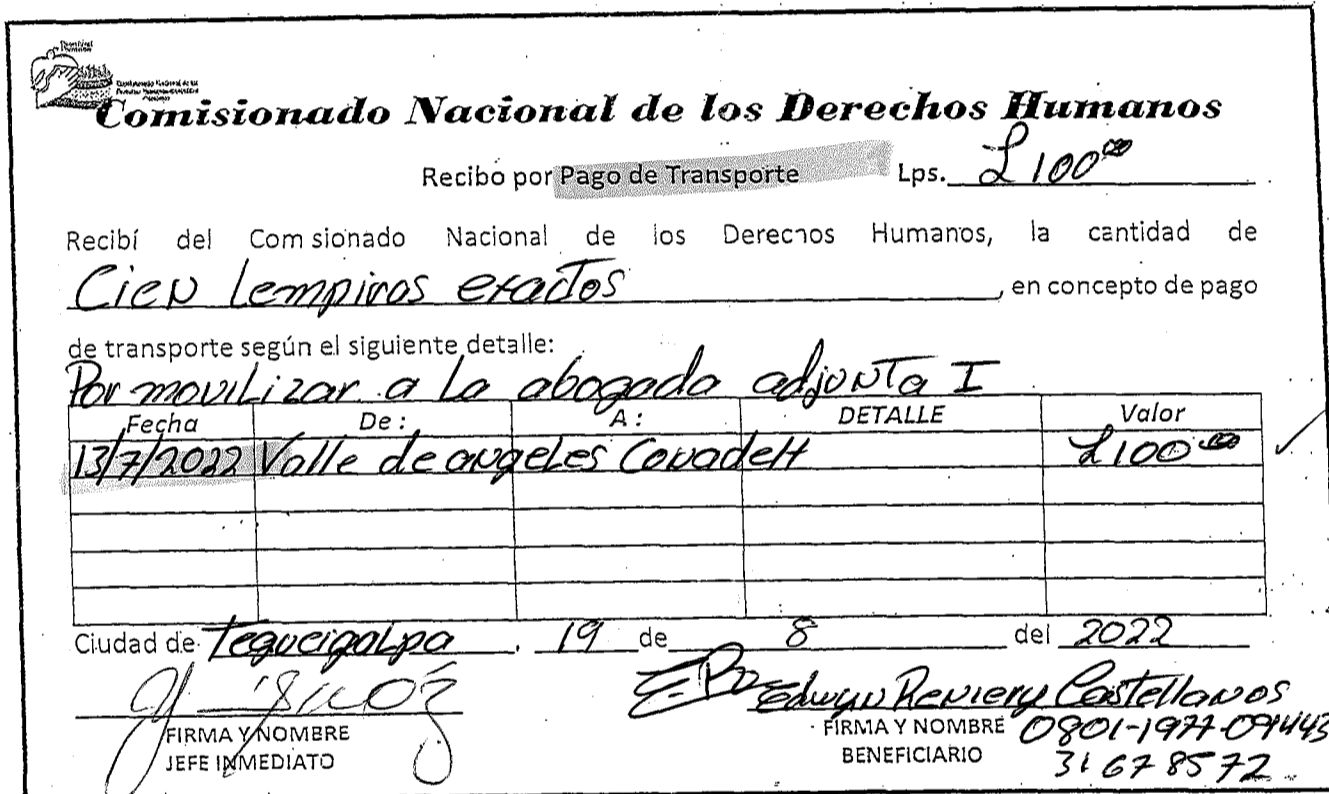 Comisionado Nacional de los Derechos Humanos
Recibo por Pago de Transporte Lps. L100.00
Recibí del Com sionado Nacional de los Derechos Humanos, la cantidad de
Cien lempiras exactos, en concepto de pago
de transporte según el siguiente detalle:
Por movilizar a la abogada adjunta I
Fecha De: A: DETALLE Valor
13/7/2022 Valle de angeles Conadeh L100.00
Ciudad de Tegucigalpa, 19 de 8 del 2022
Edwyn Reniery Castellanos
FIRMA Y NOMBRE FIRMA Y NOMBRE 0801-1977-09443
JEFE INMEDIATO BENEFICIARIO 31678572